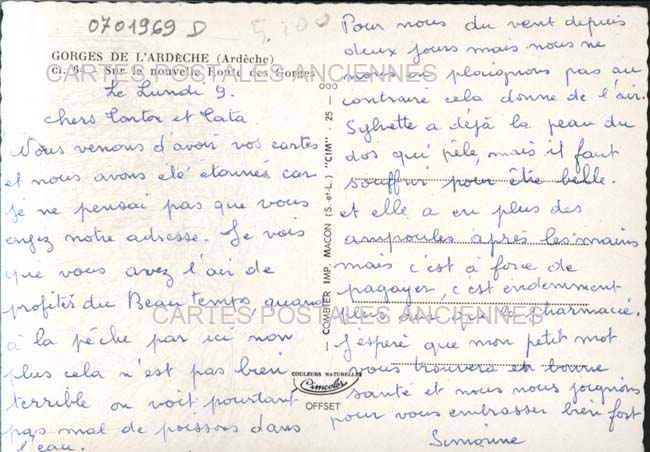 0701969 D
5,00
GORGES DE L'ARDÈCHE (Ardèche)
Sur la nouvelle Route des Gorges
CARTES POSTALES ANCIENNES
Le Lundi 9.
chers Tonton et Tata
Nous venons d'avoir vos cartes
et nous avons été étonnés car
je ne pensai pas que vous
ayez notre adresse. Je vois
que vous avez l'air de
profiter du Beau temps quand
à la pêche par ici non
plus cela n'est pas bien
terrible on voit pourtant
pas mal de poissons dans
l'eau.
COMBIER IMP. MACON (S.-et-L.) "CIM" - 25 -
COULEURS NATURELLES
Cimcolor
OFFSET
Pour nous du vent depuis
deux jours mais nous ne
nous en plaignons pas au
contraire cela donne de l'air.
Sylvette a déjà la peau du
dos qui pèle, mais il faut
souffrir pour être belle.
et elle a en plus des
ampoules après les mains
mais c'est a force de
pagayer, c'est évidemment
plus dur que la Pharmacie.
J'espère que mon petit mot
vous trouvera en bonne
santé et nous nous joignons
pour vous embrasser bien fort
Simonne
CARTES POSTALES ANCIENNES